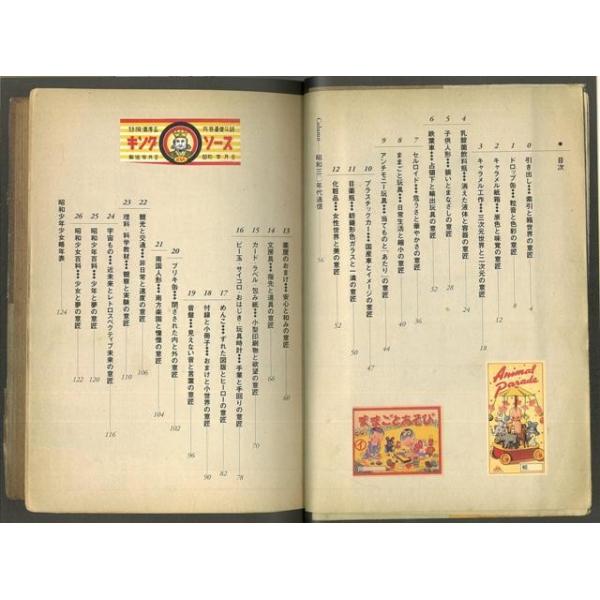 目次
0 引き出し●●●索引と箱世界の意匠 4
1 ドロップ缶●●●粒音と色彩の意匠 8
2 キャラメル紙箱●●●原色と味覚の意匠 12
3 キャラメル工作●●●三次元世界と二次元の意匠 18
4 乳酸菌飲料瓶●●●消えた液体と容器の意匠 24
5 子供人形●●●装いとまなざしの意匠 28
6 鉄葉車●●●占領下と輸出玩具の意匠 52
7 セルロイド●●●危うさと華やかさの意匠 36
8 ままごと玩具●●●日常生活と縮小の意匠 40
9 アンチモニー玩具●●●当てものと「あたり」の意匠 44
10 プラスチックカー●●●国産車とイメージの意匠 47
11 目薬瓶●●●紡錘形色ガラスと一滴の意匠 50
12 化粧品●●●女性世界と美の意匠 52
Column──昭和三〇年代通信 56
Animal Parade
ままごとあそび
イ
キング ソース
13 薬屋のおまけ●●●安心と和みの意匠 60
14 文房具●●●指先と道具の意匠 66
15 カード・ラベル・包み紙●●●小型印刷物と欲望の意匠 70
16 ビー玉・サイコロ・おはじき・玩具時計●●●手業と手回りの意匠 78
17 めんこ●●●ずれた図版とヒーローの意匠 82
18 付録と小冊子●●●おまけと小世界の意匠 90
19 音盤●●●見えない音と言葉の意匠 96
20 ブリキ缶●●●閉ざされた内と外の意匠 102
21 南国人形●●●南方楽園と憧憬の意匠 104
22 観光と交通●●●非日常と速度の意匠 106
23 理科・科学教材●●●観察と実験の意匠 110
24 宇宙もの●●●近未来とレトロスペクティブ未来の意匠 116
25 昭和少年百科●●●少年と夢の意匠 120
26 昭和少女百科●●●少女と夢の意匠 122
昭和少年少女略年表 124